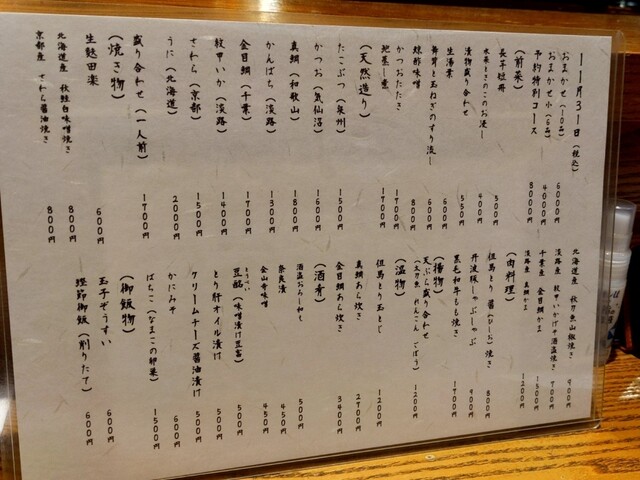 11月31日(税込)
おまかせ(10品) 6000円
おまかせ小(6品) 4000円
予約特別コース 8000円
(前菜)
長芋短冊 500円
水菜ときのこのお浸し 400円
漬物盛り合わせ 550円
生湯葉 600円
舞茸と玉ねぎのすり流し 600円
蛸酢味噌 800円
かつおたたき 1700円
地蒸し 1700円
(天然造り)
たこぶつ(泉州) 1500円
かつお(気仙沼) 1600円
真鯛(和歌山) 1800円
かんぱち(淡路) 1300円
金目鯛(千葉) 1700円
紋甲いか(淡路) 1400円
さわら(京都) 1500円
うに(北海道) 2000円
盛り合わせ(一人前) 1700円
(焼き物)
生麩田楽 600円
北海道産 秋鮭白味噌焼き 800円
京都産 さわら醤油焼き 800円
北海道産 秋刀魚山椒焼き 900円
淡路産 紋甲いかげそ酒盗焼き 700円
千葉産 金目鯛かま 1500円
淡路産 真鯛かま 1200円
(肉料理)
但馬とり醤(ひしお)焼き 800円
丹波豚しゃぶしゃぶ 900円
黒毛和牛もも焼き 1700円
(揚物)
天ぷら盛り合わせ 1200円
(太刀魚 れんこん ごぼう)
(温物)
但馬とり玉とじ 1200円
真鯛あら炊き 2700円
金目鯛あら炊き 3400円
(酒肴)
酒盗おろし和え 500円
奈良漬 450円
金山寺味噌 450円
豆酩(味噌漬け豆富) 500円
とり肝オイル漬け 500円
クリームチーズ醤油漬け 500円
かにみそ 600円
ばちこ(なまこの卵巣) 1500円
(御飯物)
玉子ぞうすい 600円
鰹節御飯(削りたて) 600円